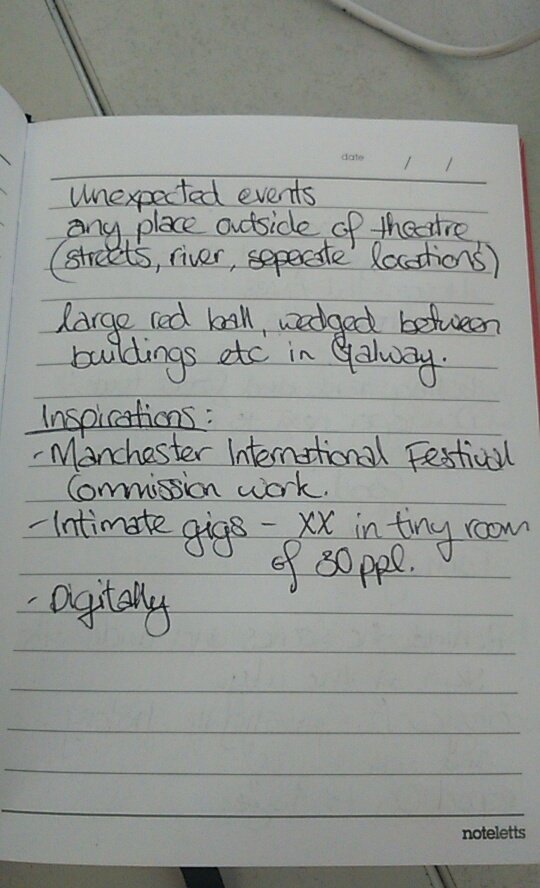 date / /
Unexpected events
any place outside of theatre
(streets, river, seperate locations)
large red ball, wedged between
buildings etc in Galway.
Inspirations:
- Manchester International Festival
Commission work.
- Intimate gigs - XX in tiny room
of 30 ppl.
- Digitally
noteletts